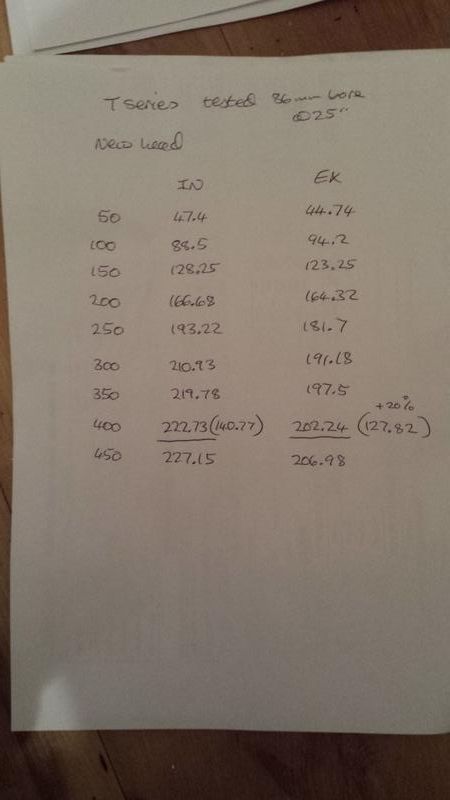 T series tested 86mm bore
@25"
New head
IN EX
50 47.4 44.74
100 88.5 94.2
150 128.25 123.25
200 166.68 164.32
250 193.22 181.7
300 210.93 191.18
350 219.78 197.5
+20%
400 222.73 (140.77) 202.24 (127.82)
450 227.15 206.98